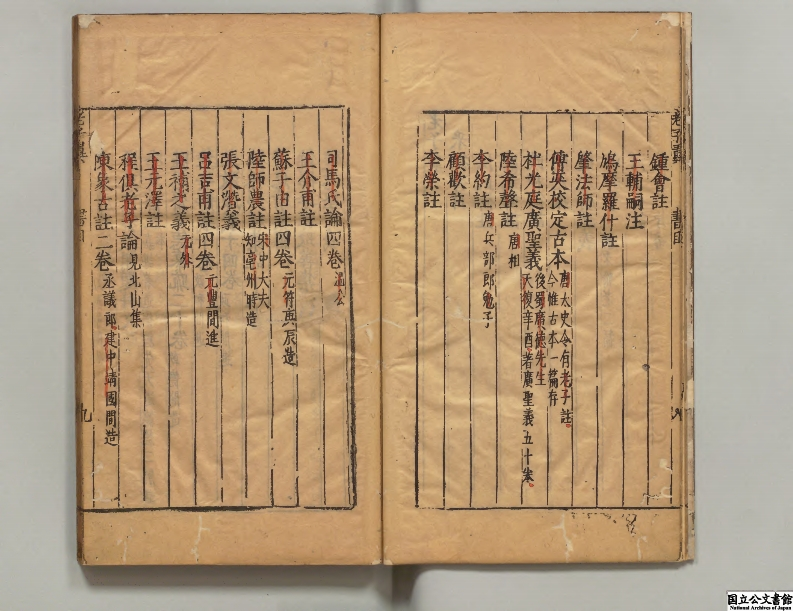 老子翼
書目
鍾會註
王輔嗣注
鳩摩羅什註
肇法師註
傅奕校定古本唐太史令有老子註
今惟古本一篇存
杜光庭廣聖義後蜀廣德先生
天復辛酉著廣聖義五十
陸希聲註唐相
李約註唐兵部郎勉子
顧歡註
李榮註
司馬氏論四卷溫公
王介甫註
蘇子由註四卷元符庚辰造
陸師農註宋中大夫
知亳州時造
張文潛義
呂吉甫註四卷元豐間進
王元澤註
程俱老子論見北山集
陳象古註二卷丞議郎建中靖國間造
老子翼
書目
九
国立公文書館
National Archives of Japan